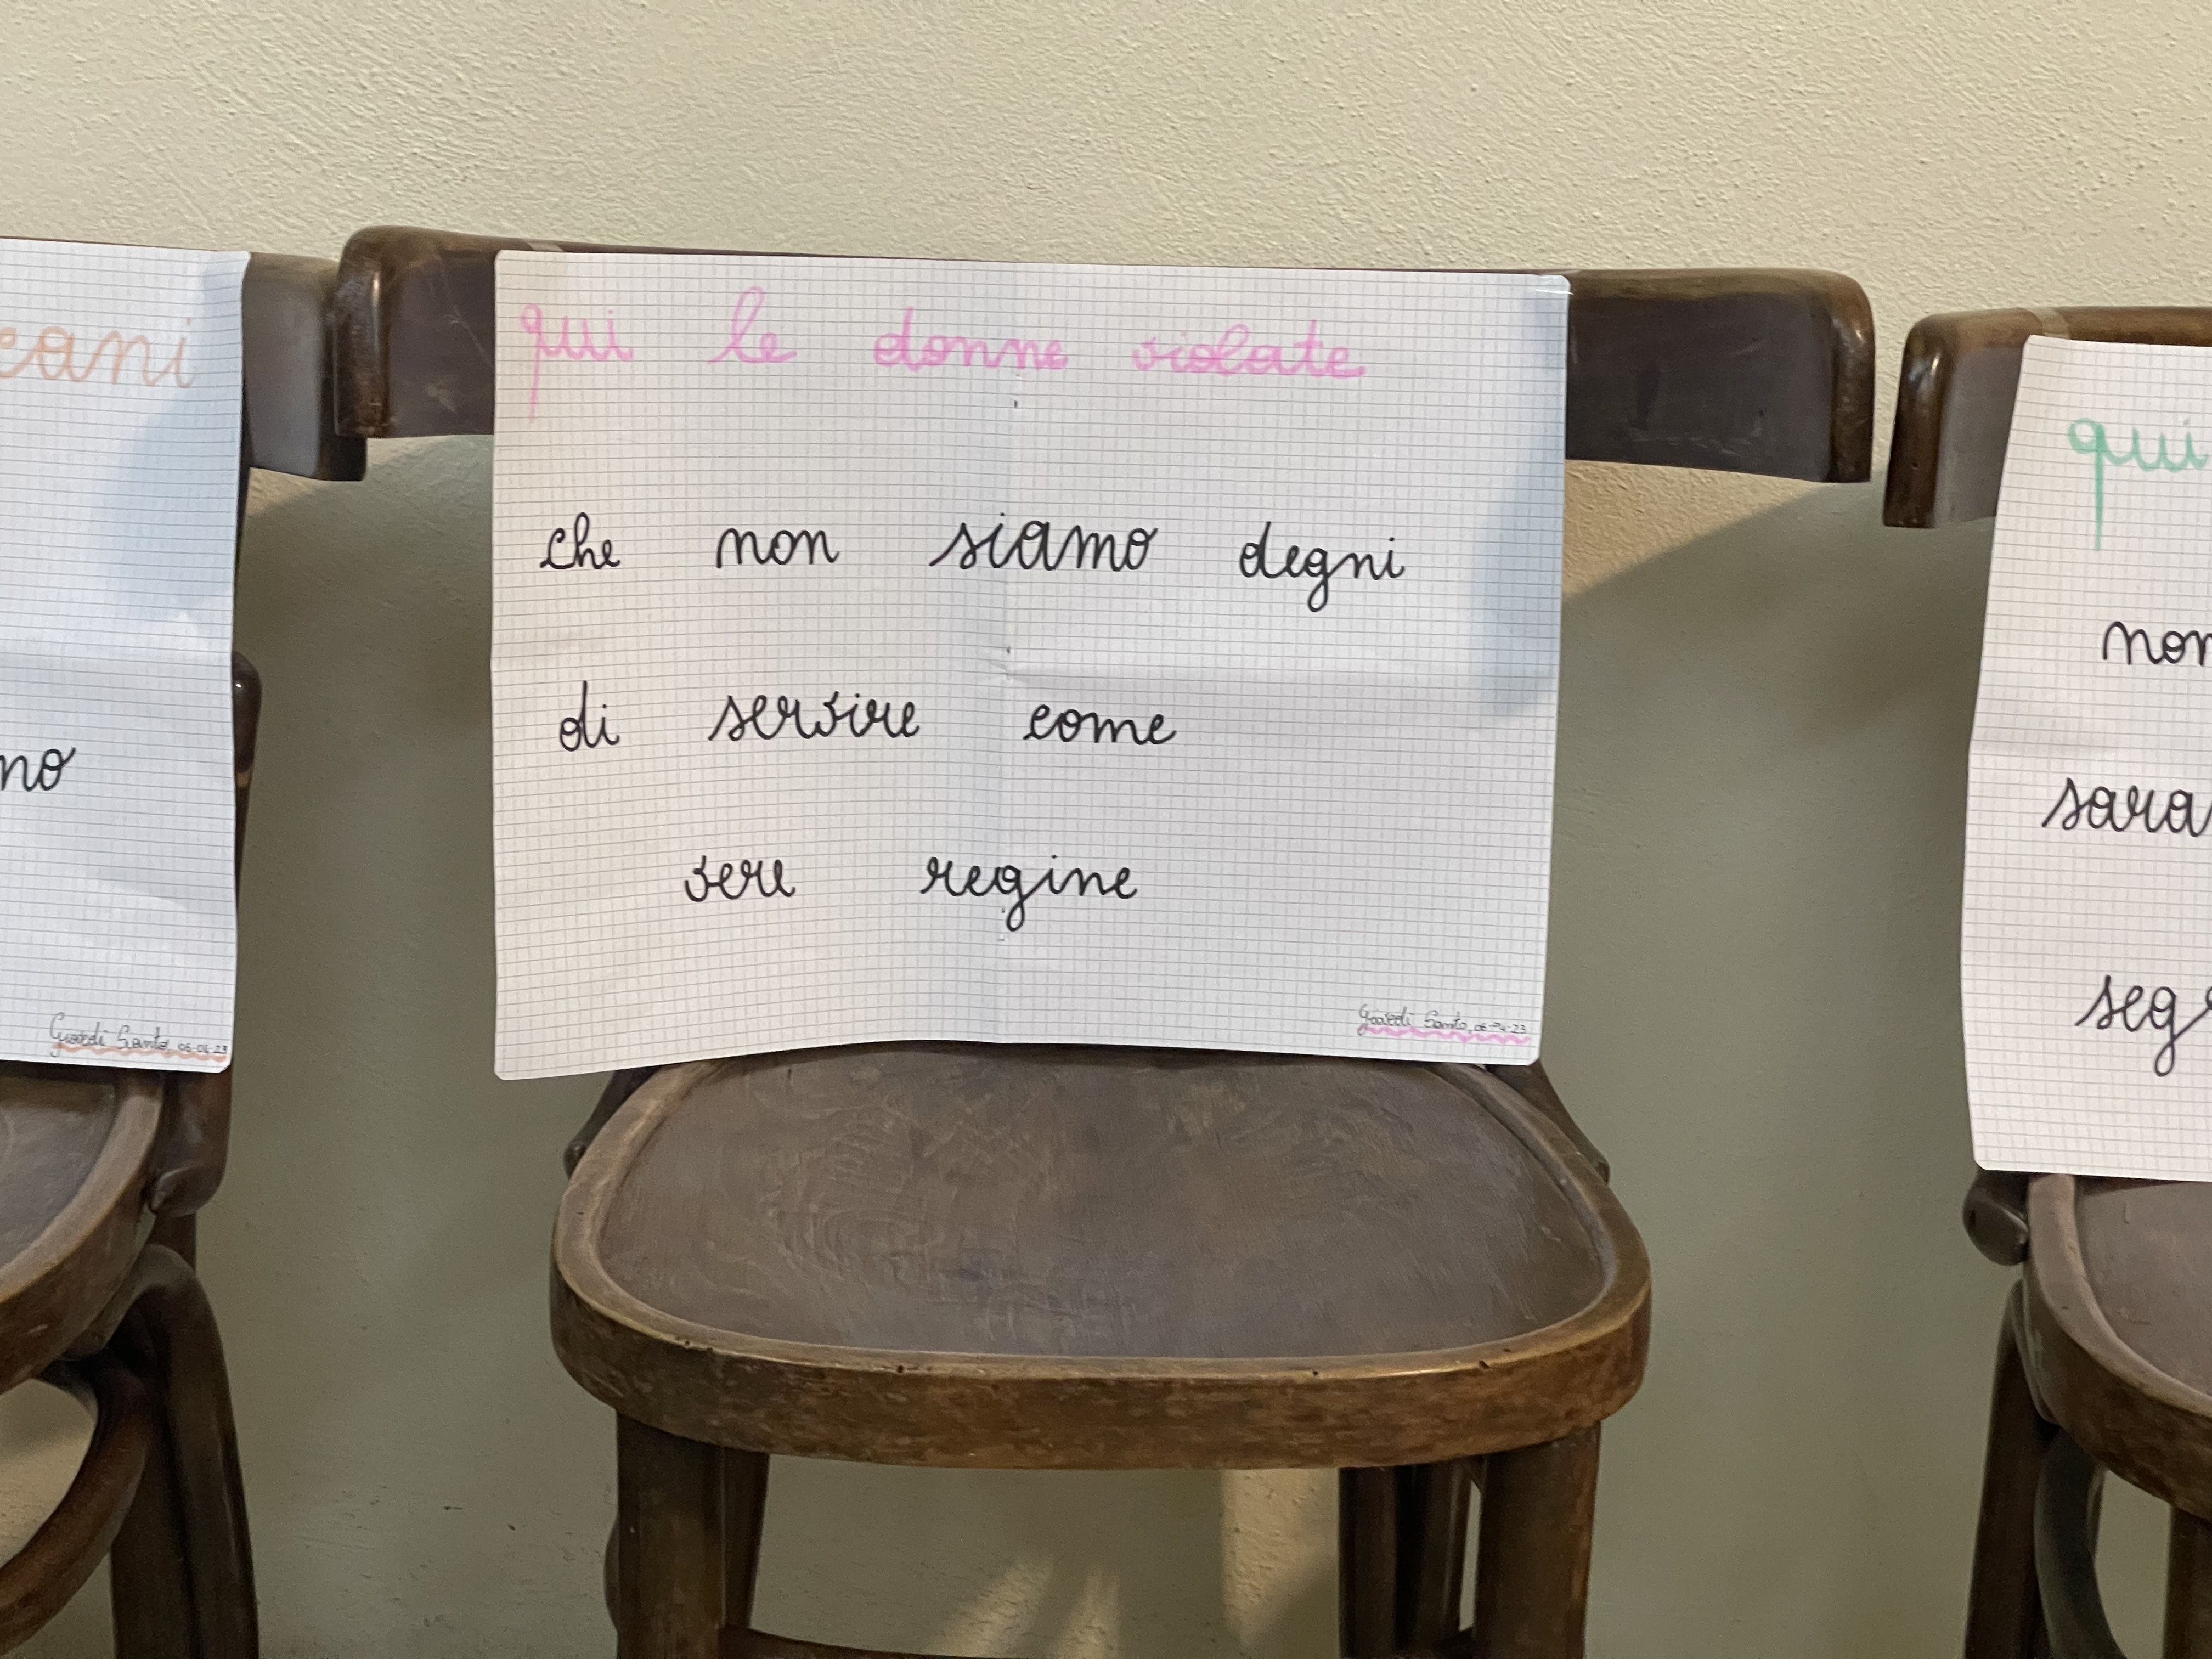 eani
no
Giovedì Santo, 06-04-23
qui le donne violate
che non siamo degni
di servire come
vere regine
Giovedì Santo, 06-04-23
qui
non
sara
seg